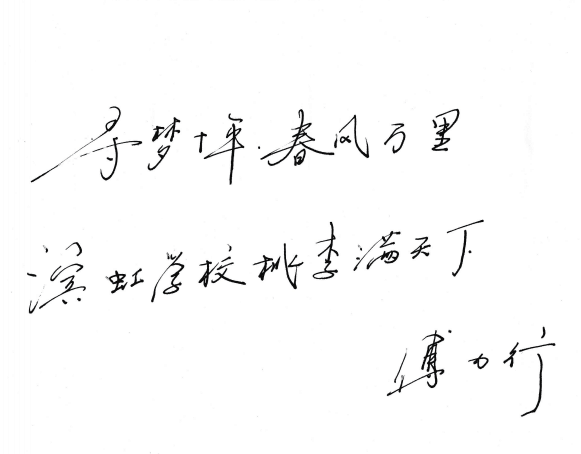 寻梦十年.春风万里
滨虹学校桃李满天下
傅为行